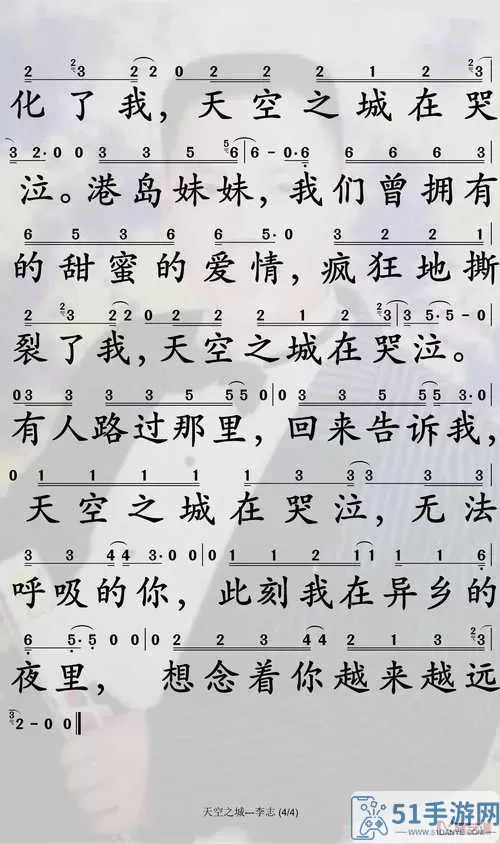 2 2/3 2 2 0 2 2 2 1 2 2/3
化了我，天空之城在哭
3 2· 0 0 3 3 3 5 5/6 6 - 0· 6 6 6 6 3
泣。港岛妹妹，我们曾拥有
6 5 3 6 6 5· 0 3 2 2 1
的甜蜜的爱情，疯狂地撕
2/2 3 2 2 0 2 2 2 1 2 2/3 3 5· 5 - 0
裂了我，天空之城在哭泣。
0 3 3 3 3 5 5 5 0 3 3 3 5 5 3· 0
有人路过那里，回来告诉我，
0 1 1 1 1 1 2 3 3 3 3
天空之城在哭泣，无法
3 3 4 4 3· 0 0 0 1 1 2 1 1 1 1 6
呼吸的你，此刻我在异乡的
6 5· 5 0 0 0 2 2 3 4 4 2 1 3 2/3
夜里，想念着你越来越远
3/2 - 0 0
天空之城---李志 (4/4)
51手游网
WWW.51DANYE.COM